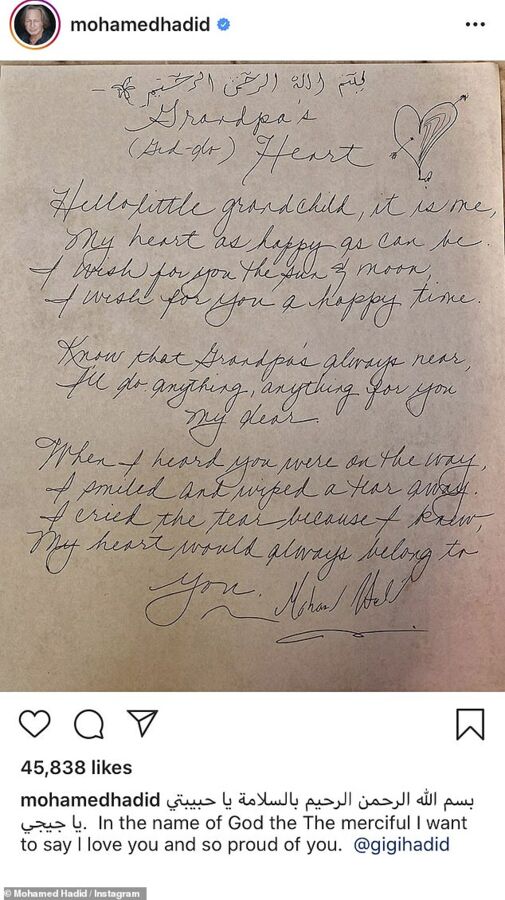 mohamedhadid
بسم الله الرحمن الرحيم
Grandpa's
(Gid-do) Heart
Hello little grandchild, it is me,
My heart as happy as can be.
I wish for you the sun & moon,
I wish for you a happy time.
Know that Grandpa's always near,
I'll do anything, anything for you
my dear.
When I heard you were on the way,
I smiled and wiped a tear away.
I cried the tear because I knew,
My heart would always belong to
you.
45,838 likes
mohamedhadid بسم الله الرحمن الرحيم بالسلامة يا حبيبتي
يا جيجي. In the name of God the The merciful I want
to say I love you and so proud of you. @gigihadid
© Mohamed Hadid / Instagram